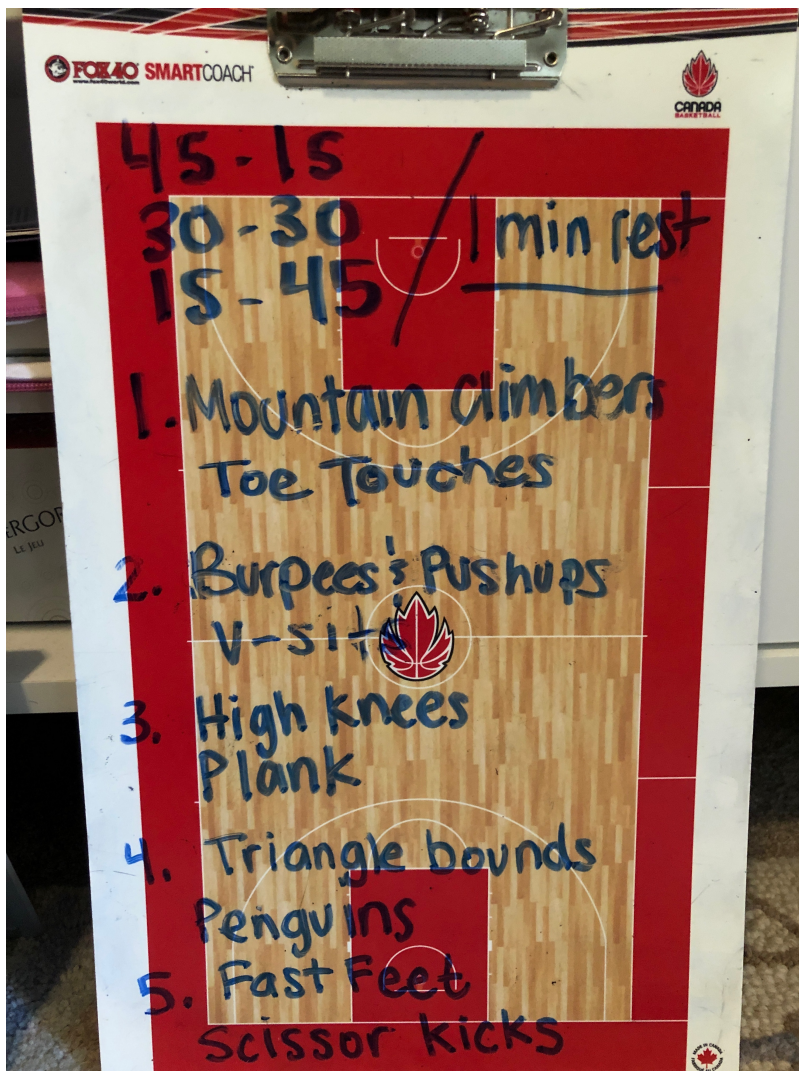 FOX40 SMARTCOACH
www.fox40world.com
CANADA
BASKETBALL
45-15
30-30 / 1 min rest
15-45
1. Mountain climbers
Toe Touches
2. Burpees & Pushups
V-sits
3. High knees
Plank
4. Triangle bounds
Penguins
5. Fast Feet
Scissor kicks
ERGOF
LE JEU
MADE IN CANADA